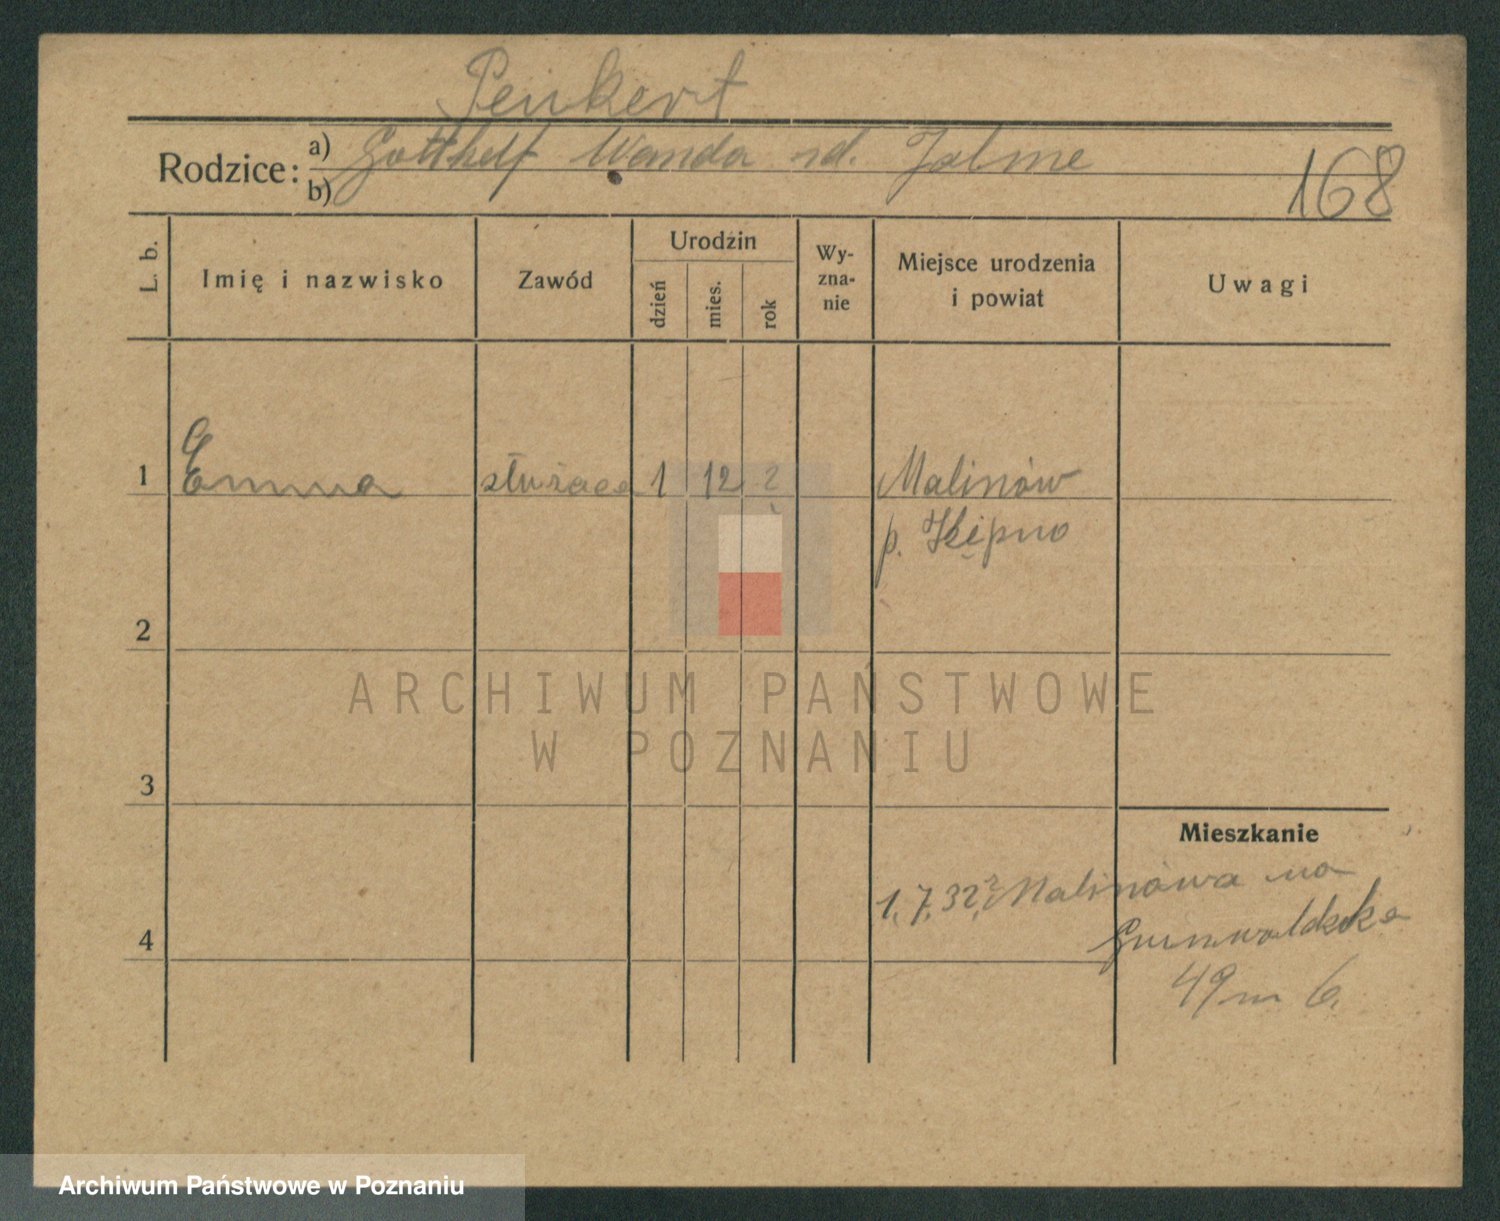 Penkert
Rodzice: a) Gotthelf Wanda rd.
b)
168
L. b.
Imię i nazwisko
Zawód
Urodzin
dzień
mies.
rok
Wy-
zna-
nie
Miejsce urodzenia
i powiat
Uwagi
1 Emma służąca 1 12 2 Malinów
p. Kępno
2
ARCHIWUM PAŃSTWOWE
W POZNANIU
3
Mieszkanie
1.7.32 z Malinowa na
4
Grunwaldzka
49 m 6.
Archiwum Państwowe w Poznaniu